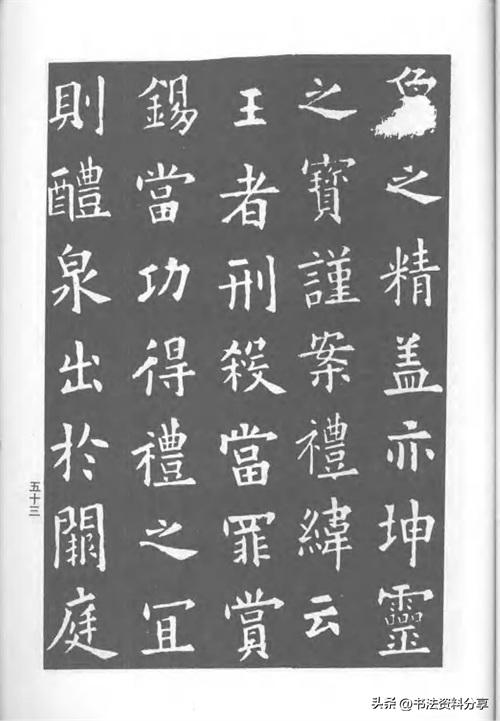 之精盖亦坤靈
之寶謹案禮緯云
王者刑殺當罪賞
錫當功得禮之冝
則醴泉出於闕庭
五十三
头条 @书法资料分享